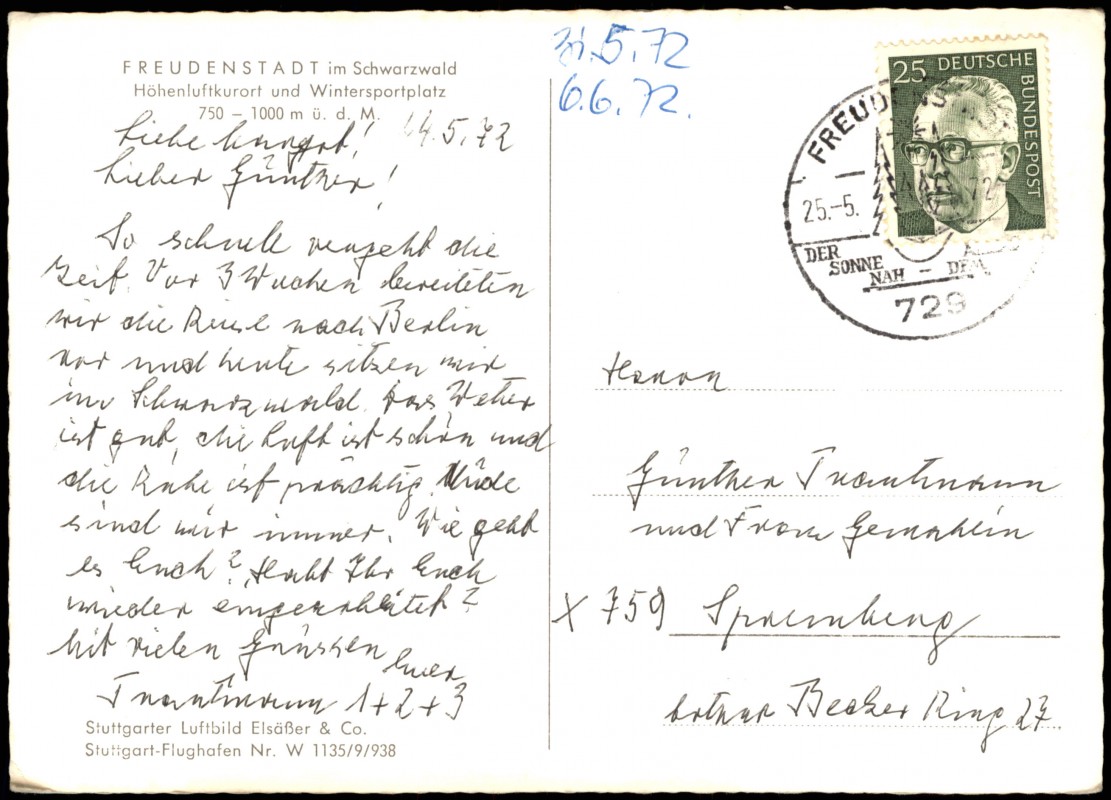 FREUDENSTADT im Schwarzwald
Höhenluftkurort und Wintersportplatz
750 – 1000 m ü. d. M.
Liebe ! 24.5.72
Lieber Günther!
So schnell vergeht die
Zeit. Vor 3 Wochen bereiteten
wir die Reise nach Berlin
vor und heute sitzen wir
im Schwarzwald. Das Wetter
ist gut, die Luft ist schön und
die Ruhe ist prächtig. Müde
sind wir immer. Wie geht
es Euch? Habt Ihr Euch
wieder eingearbeitet?
Mit vielen Grüssen Euer
Trautmann 1+2+3
Stuttgarter Luftbild Elsäßer & Co.
Stuttgart-Flughafen Nr. W 1135/9/938
31.5.72
6.6.72.
25 DEUTSCHE BUNDESPOST
FREUDENS
25.-5. 72
DER
SONNE
NAH – DEM
729
Herrn
Günther Trautmann
und Frau Gemahlin
X 759 Spremberg
Lothar Becker Ring 27